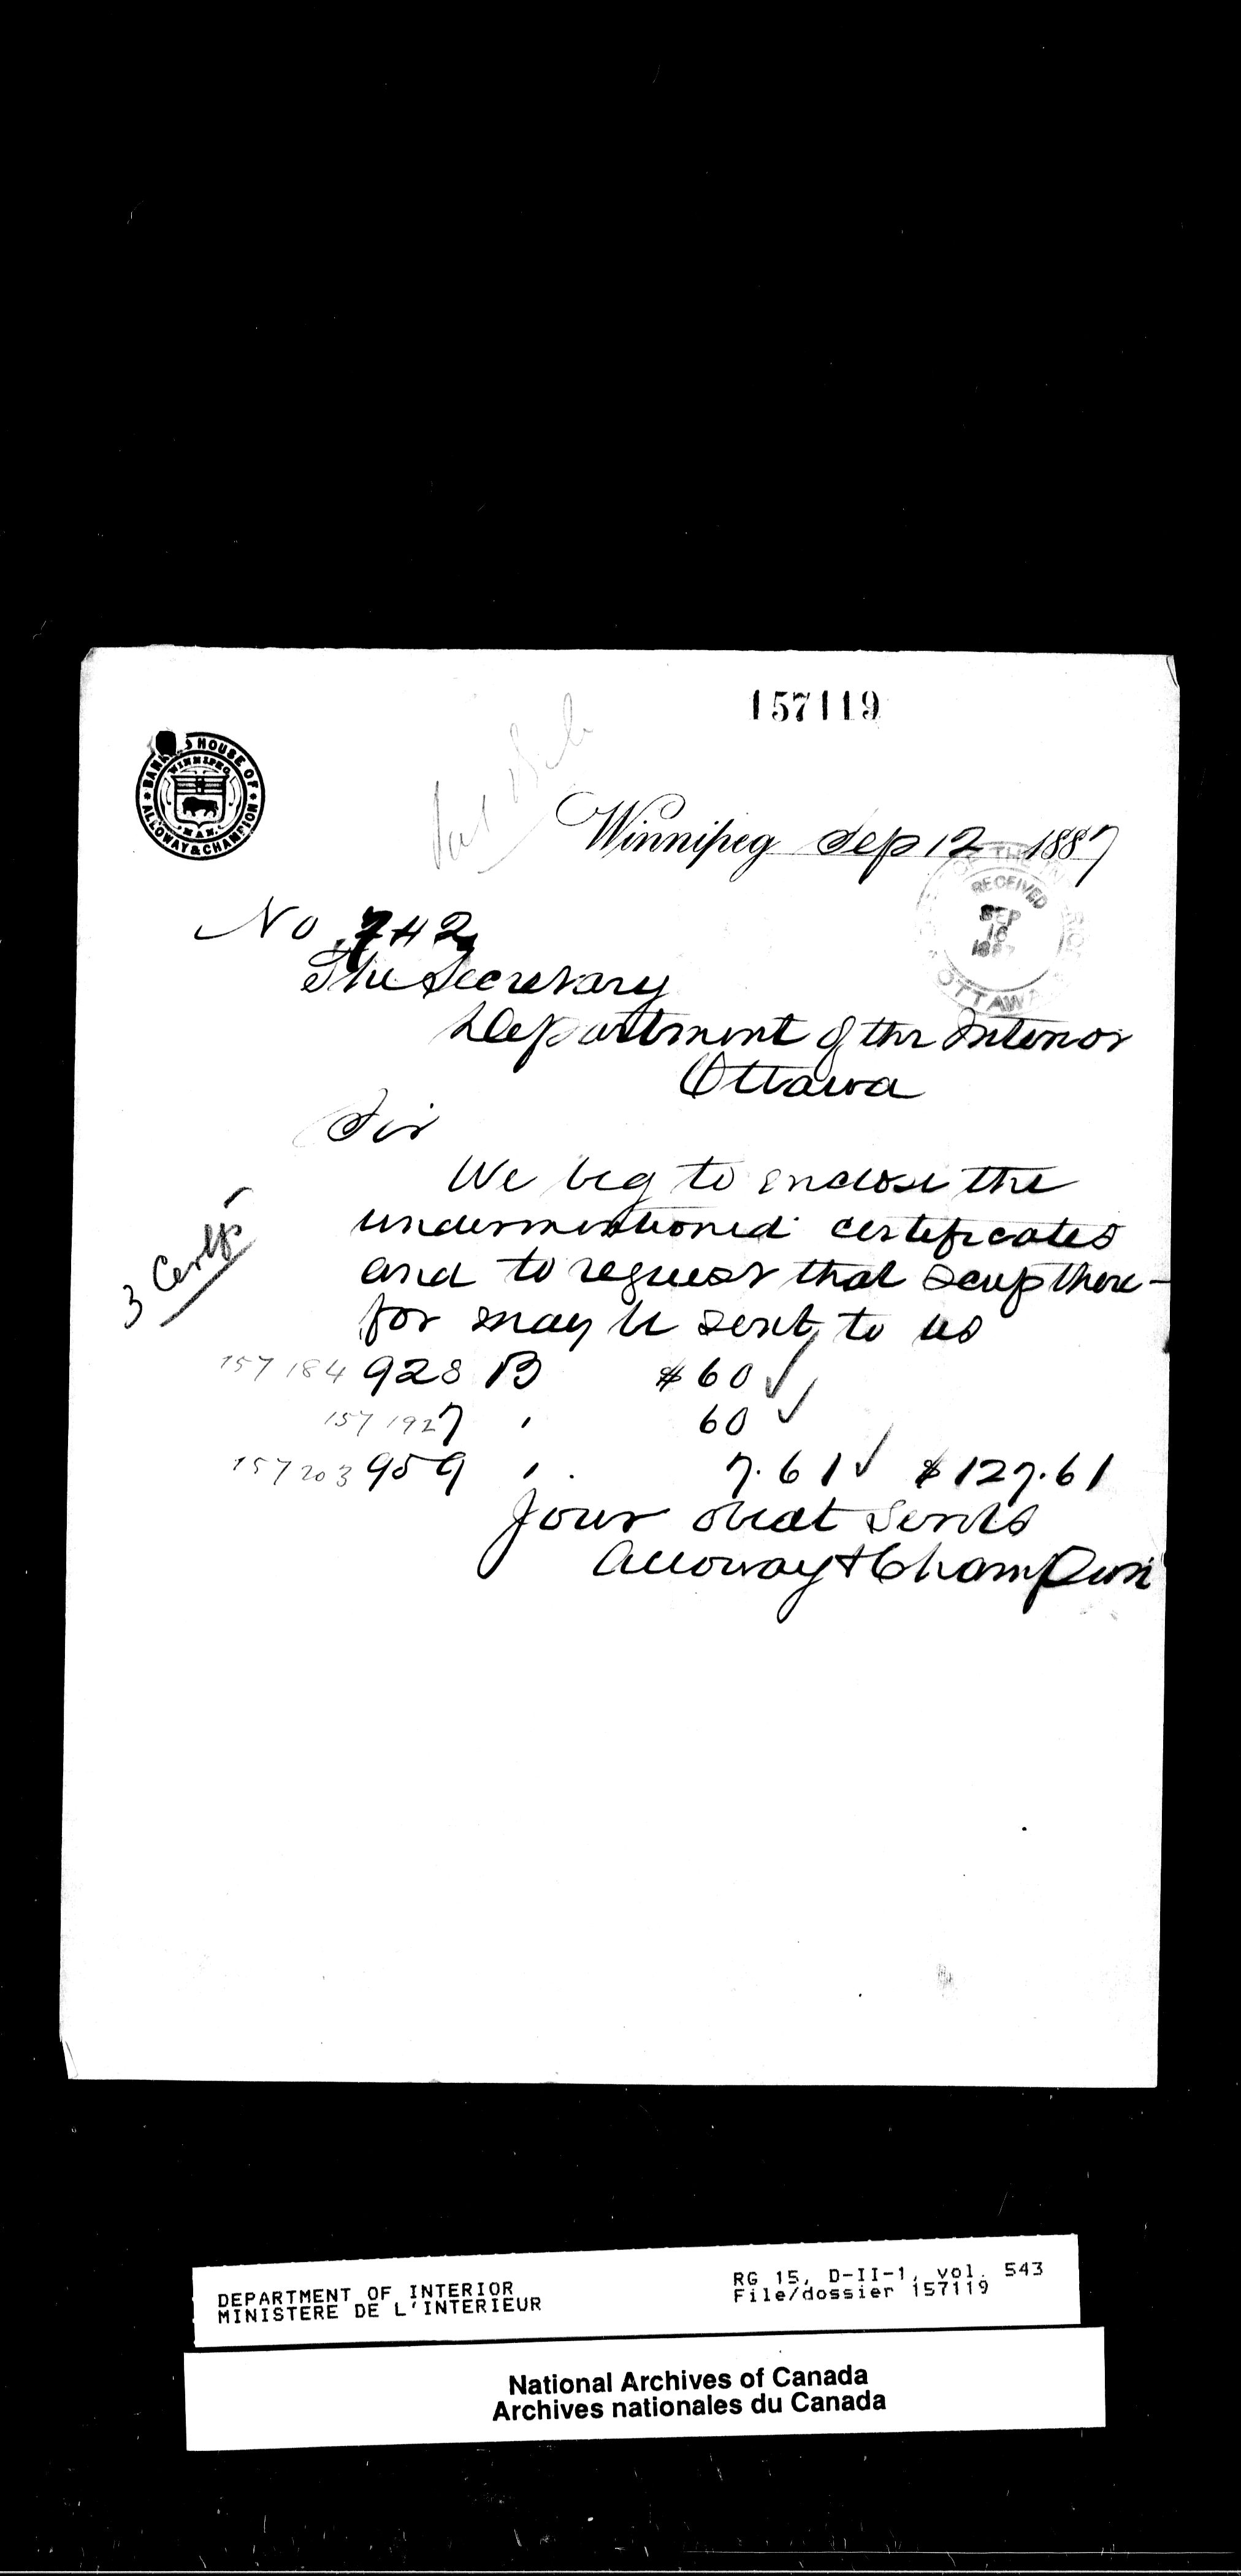 157119
BANKING HOUSE OF
ALLOWAY & CHAMPION
WINNIPEG
MAN.
Winnipeg Sep 12 1887
OF THE INTERIOR
RECEIVED
SEP
16
1887
OTTAWA
No 742
The Secretary
Department of the Interior
Ottawa
Sir
We beg to enclose the
undermentioned certificates
3 Certfs
and to request that scrip there-
for may be sent to us
157184 928 B $60 ✓
157192 7 " 60 ✓
157203 959 " 7.61 ✓ $127.61
Your obedt Servts
Alloway & Champion
DEPARTMENT OF INTERIOR
MINISTERE DE L'INTERIEUR
RG 15, D-II-1, vol. 543
File/dossier 157119
National Archives of Canada
Archives nationales du Canada